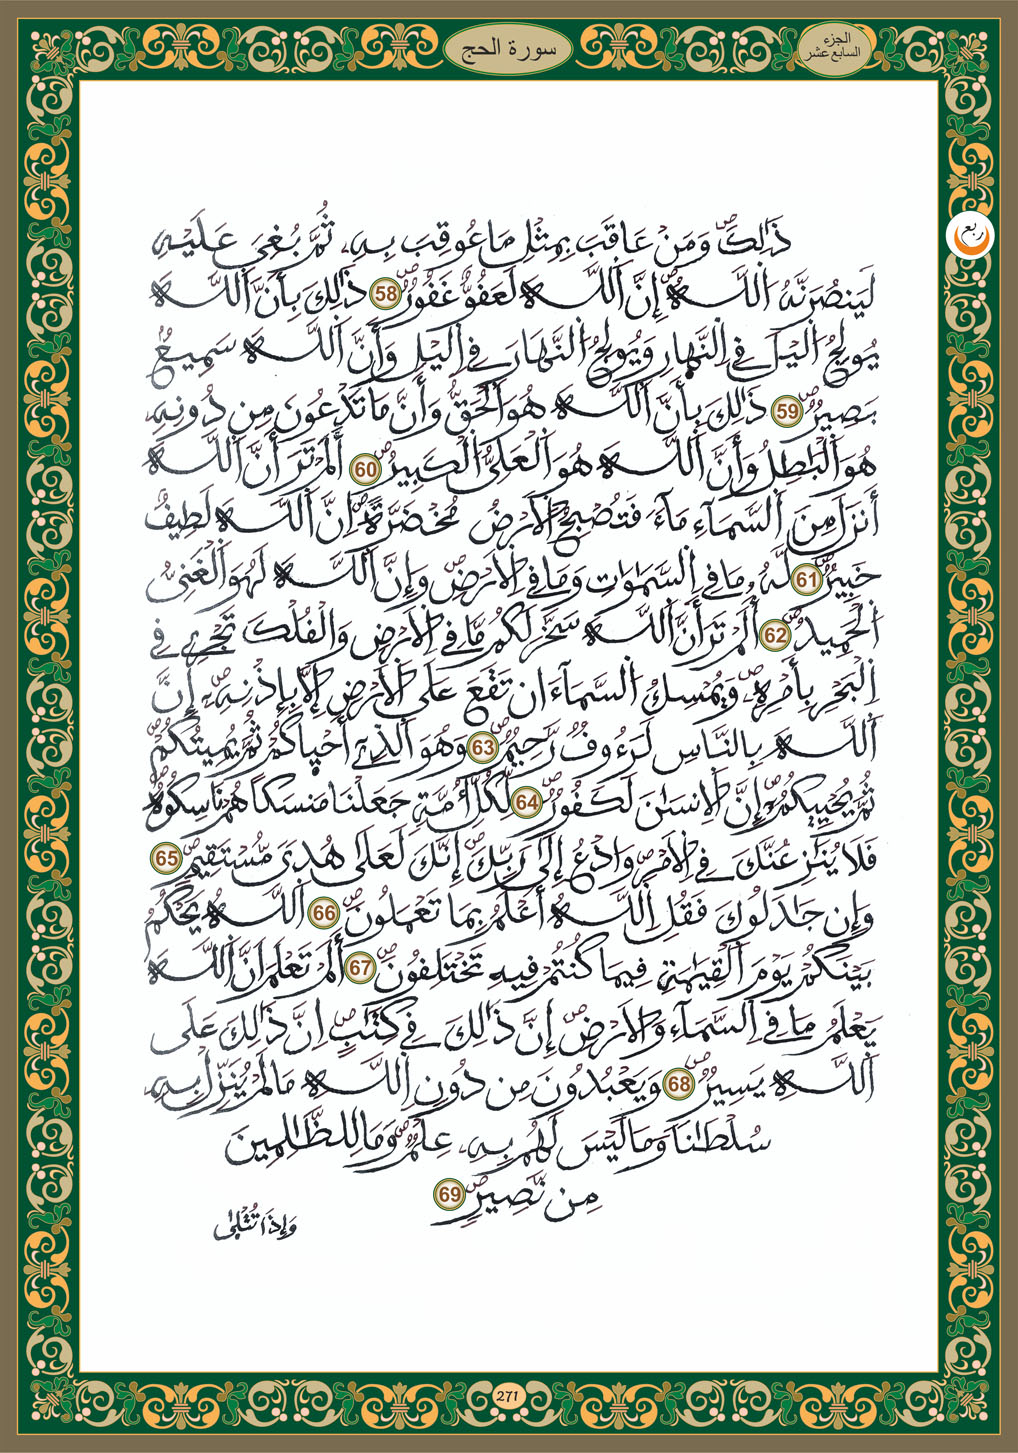 سورة الحج
الجزء
السابع عشر
ربع
ذَٰلِكَ وَمَنْ عَاقَبَ بِمِثْلِ مَا عُوقِبَ بِهِۦ ثُمَّ بُغِيَ عَلَيْهِ
لَيَنصُرَنَّهُ اللَّهُ إِنَّ اللَّهَ لَعَفُوٌّ غَفُورٌ 58 ذَٰلِكَ بِأَنَّ اللَّهَ
يُولِجُ الَيْلَ فِي النَّهَارِ وَيُولِجُ النَّهَارَ فِي الَيْلِ وَأَنَّ اللَّهَ سَمِيعٌ
بَصِيرٌ 59 ذَٰلِكَ بِأَنَّ اللَّهَ هُوَ الْحَقُّ وَأَنَّ مَا تَدْعُونَ مِن دُونِهِۦ
هُوَ الْبَٰطِلُ وَأَنَّ اللَّهَ هُوَ الْعَلِيُّ الْكَبِيرُ 60 أَلَمْ تَرَ أَنَّ اللَّهَ
أَنزَلَ مِنَ السَّمَآءِ مَآءً فَتُصْبِحُ الَارْضُ مُخْضَرَّةً اِنَّ اللَّهَ لَطِيفٌ
خَبِيرٌ 61 لَّهُۥ مَا فِي السَّمَٰوَٰتِ وَمَا فِي الَارْضِ وَإِنَّ اللَّهَ لَهُوَ الْغَنِيُّ
الْحَمِيدُ 62 أَلَمْ تَرَ أَنَّ اللَّهَ سَخَّرَ لَكُم مَّا فِي الَارْضِ وَالْفُلْكَ تَجْرِي فِي
الْبَحْرِ بِأَمْرِهِۦ وَيُمْسِكُ السَّمَآءَ ان تَقَعَ عَلَى الَارْضِ إِلَّا بِإِذْنِهِۦ إِنَّ
اللَّهَ بِالنَّاسِ لَرَءُوفٌ رَّحِيمٌ 63 وَهُوَ الَّذِي أَحْياكُمْ ثُمَّ يُمِيتُكُمْ
ثُمَّ يُحْيِيكُمُ إِنَّ الِانسَٰنَ لَكَفُورٌ 64 لِّكُلِّ أُمَّةٍ جَعَلْنَا مَنسَكًا هُمْ نَاسِكُوهُ
فَلَا يُنَٰزِعُنَّكَ فِي الَامْرِ وَادْعُ إِلَىٰ رَبِّكَ إِنَّكَ لَعَلَىٰ هُدًى مُّسْتَقِيمٍ 65
وَإِن جَٰدَلُوكَ فَقُلِ اللَّهُ أَعْلَمُ بِمَا تَعْمَلُونَ 66 اللَّهُ يَحْكُمُ
بَيْنَكُمْ يَوْمَ الْقِيَٰمَةِ فِيمَا كُنتُمْ فِيهِ تَخْتَلِفُونَ 67 أَلَمْ تَعْلَمَ انَّ اللَّهَ
يَعْلَمُ مَا فِي السَّمَآءِ وَالَارْضِ إِنَّ ذَٰلِكَ فِي كِتَٰبٍ اِنَّ ذَٰلِكَ عَلَى
اللَّهِ يَسِيرٌ 68 وَيَعْبُدُونَ مِن دُونِ اللَّهِ مَا لَمْ يُنَزِّلْ بِهِۦ
سُلْطَٰنًا وَمَا لَيْسَ لَهُم بِهِۦ عِلْمٌ وَمَا لِلظَّٰلِمِينَ
مِن نَّصِيرٍ 69
وَإِذَا تُتْلَىٰ
271